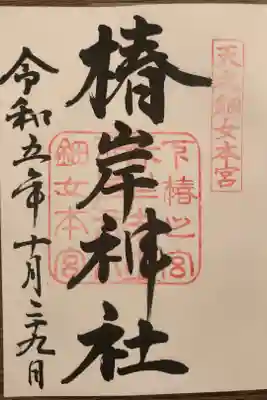 天之鈿女本宮
椿岸神社
下椿之宮
鈿女本宮
令和五年十月二十九日